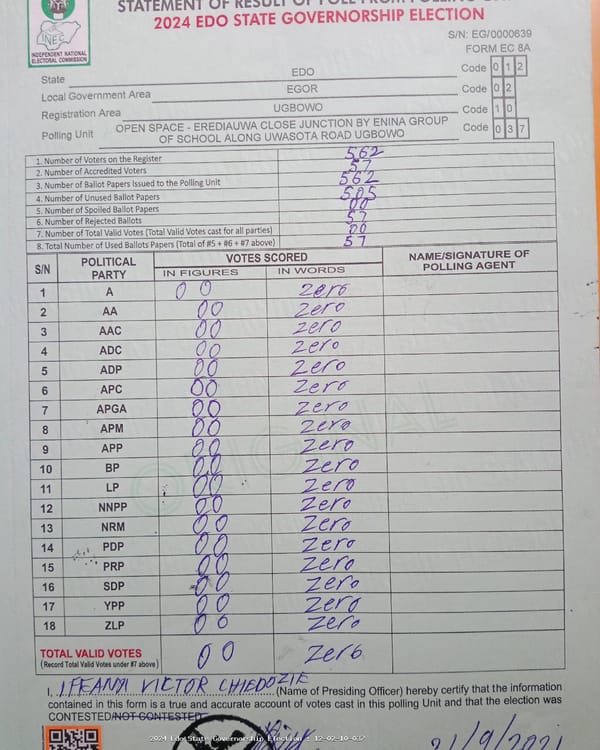 STATEMENT OF RESULT OF POLL FROM POLLING
2024 EDO STATE GOVERNORSHIP ELECTION
INEC
INDEPENDENT NATIONAL
ELECTORAL COMMISSION
S/N: EG/0000639
FORM EC 8A
State EDO Code 0 1 2
Local Government Area EGOR Code 0 2
Registration Area UGBOWO Code 1 0
Polling Unit OPEN SPACE - EREDIAUWA CLOSE JUNCTION BY ENINA GROUP Code 0 3 7
OF SCHOOL ALONG UWASOTA ROAD UGBOWO
1. Number of Voters on the Register 562
2. Number of Accredited Voters 57
3. Number of Ballot Papers Issued to the Polling Unit 562
4. Number of Unused Ballot Papers 505
5. Number of Spoiled Ballot Papers 00
6. Number of Rejected Ballots 57
7. Number of Total Valid Votes (Total Valid Votes cast for all parties) 00
8. Total Number of Used Ballots Papers (Total of #5 + #6 + #7 above) 57
S/N POLITICAL PARTY VOTES SCORED NAME/SIGNATURE OF POLLING AGENT
IN FIGURES IN WORDS
1 A 00 Zero
2 AA 00 Zero
3 AAC 00 Zero
4 ADC 00 Zero
5 ADP 00 Zero
6 APC 00 Zero
7 APGA 00 Zero
8 APM 00 Zero
9 APP 00 Zero
10 BP 00 Zero
11 LP 00 Zero
12 NNPP 00 Zero
13 NRM 00 Zero
14 PDP 00 Zero
15 PRP 00 Zero
16 SDP 00 Zero
17 YPP 00 Zero
18 ZLP 00 Zero
ORIGINAL
TOTAL VALID VOTES 00 Zero
(Record Total Valid Votes under #7 above)
I, IFEANYI VICTOR CHIEDOZIE (Name of Presiding Officer) hereby certify that the information
contained in this form is a true and accurate account of votes cast in this polling Unit and that the election was
CONTESTED/NOT CONTESTED
2024 Edo State Governorship Election
21/9/202